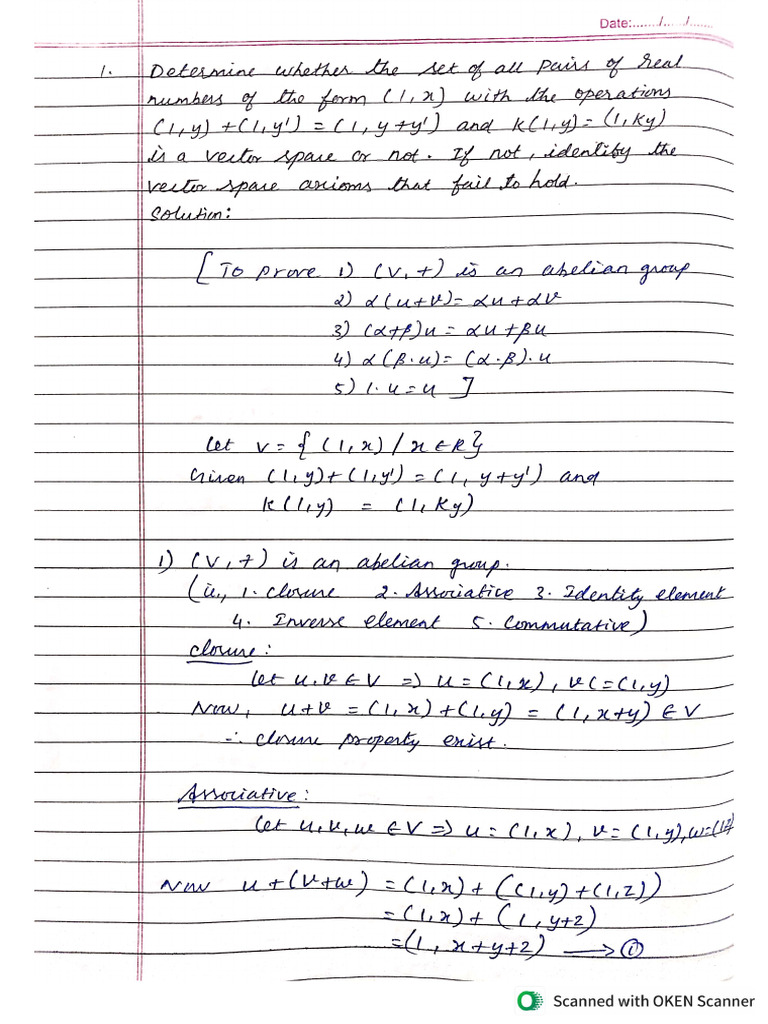 Date:......./....../.......
1. Determine whether the set of all pairs of real
numbers of the form (1,x) with the operations
(1,y)+(1,y') = (1, y+y') and k(1,y)= (1,ky)
is a vector space or not. If not, identify the
vector space axioms that fail to hold.
Solution:
[To prove 1) (V,+) is an abelian group
2) α(u+v)= αu+αv
3) (α+β)u = αu+βu
4) α(β.u)= (α.β).u
5) 1.u=u ]
Let V= { (1,x) / x∈R}
Given (1,y)+(1,y') = (1, y+y') and
k(1,y) = (1, Ky)
1) (V,+) is an abelian group.
(ie., 1. closure 2. Associative 3. Identity element
4. Inverse element 5. Commutative)
Closure:
Let u,v∈V => u=(1,x), v(=(1,y)
Now, u+v = (1,x)+(1,y) = (1,x+y) ∈V
∴ closure property exist.
Associative:
Let u,v,w ∈V => u=(1,x), v=(1,y),w=(1z)
Now u+(v+w) = (1,x)+((1,y)+(1,z))
= (1,x)+ (1,y+z)
=(1, x+y+z) → ①
Scanned with OKEN Scanner